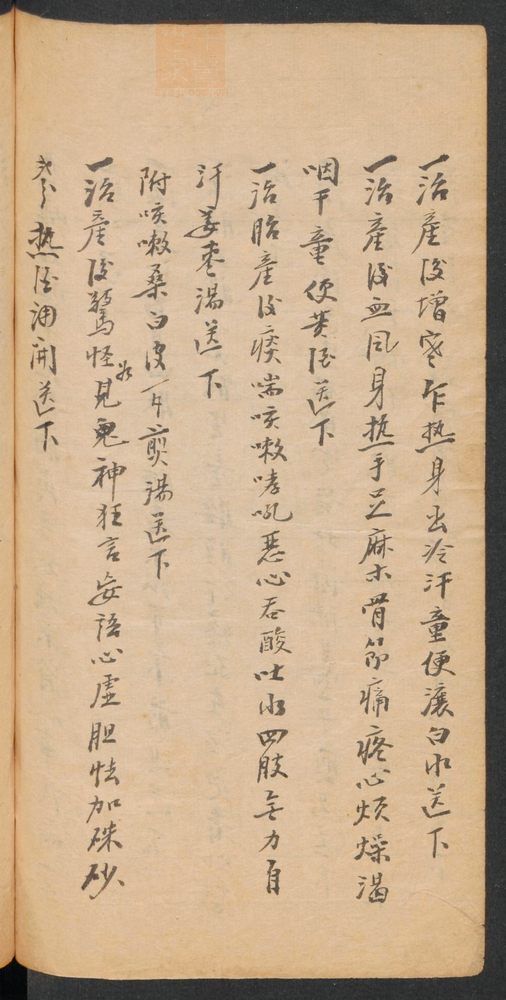 一治產後增寒乍热身出冷汗童便滚白水送下
一治產後血風身热手足麻木骨節痛疼心烦燥渴
咽干童便黄酒送下
一治胎產後痰喘咳嗽哮吼惡心吞酸吐水四肢無力自
汗姜枣湯送下
附咳嗽桑白皮一片煎湯送下
一治產後驚怪如見鬼神狂言妄語心虛胆怯加硃砂
叁分热酒调開送下